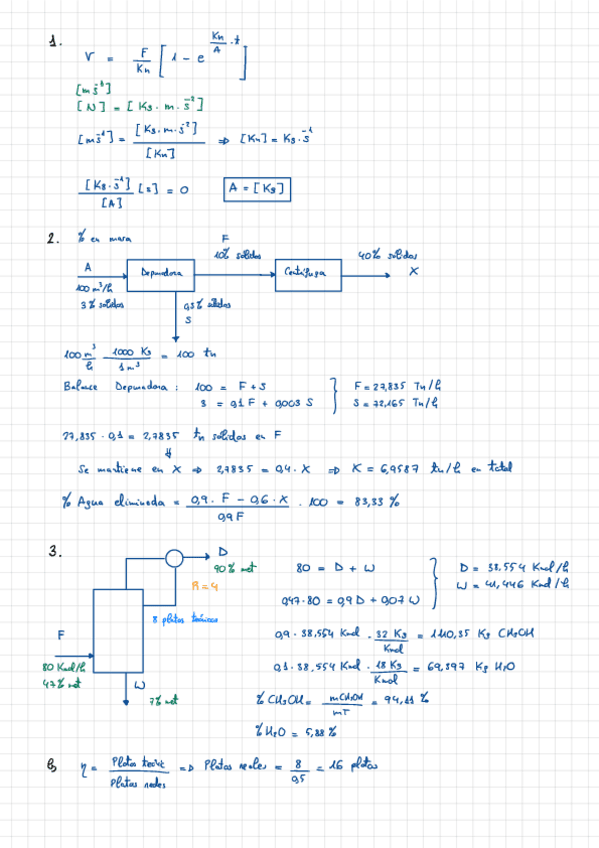 1.
V = F/Kn [ 1 - e^(Kn/A · t) ]
[m s⁻¹]
[N] = [Kg · m · s⁻²]
[m s⁻¹] = [Kg · m · s⁻²] / [Kn] ⇒ [Kn] = Kg · s⁻¹
[Kg · s⁻¹] / [A] [s] = 0 A = [Kg]
2. % en masa
A
100 m³/h
3% solidos
Depuradora
F
10% solidos
Centrifuga
40% solidos
X
0,3% solidos
S
100 m³/h · 1000 Kg / 1 m³ = 100 tn
Balance Depuradora : 100 = F + S } F = 27,835 Tn/h
3 = 0,1 F + 0,003 S S = 72,165 Tn/h
27,835 · 0,1 = 2,7835 tn solidos en F
⇓
Se mantiene en X ⇒ 2,7835 = 0,4 · X ⇒ X = 6,9587 tn/h en total
% Agua eliminada = (0,9 · F - 0,6 · X) / 0,9F · 100 = 83,33 %
3.
D
90% met
R = 4
8 platos teóricos
F
80 Kmol/h
47% met
W
7% met
80 = D + W } D = 38,554 Kmol/h
0,47 · 80 = 0,9 D + 0,07 W W = 41,446 Kmol/h
0,9 · 38,554 Kmol · 32 Kg / Kmol = 1110,35 Kg CH₃OH
0,1 · 38,554 Kmol · 18 Kg / Kmol = 69,397 Kg H₂O
% CH₃OH = mCH₃OH / mT = 94,11 %
% H₂O = 5,88 %
b) η = Platos teóric / Platos reales ⇒ Platos reales = 8 / 0,5 = 16 platos